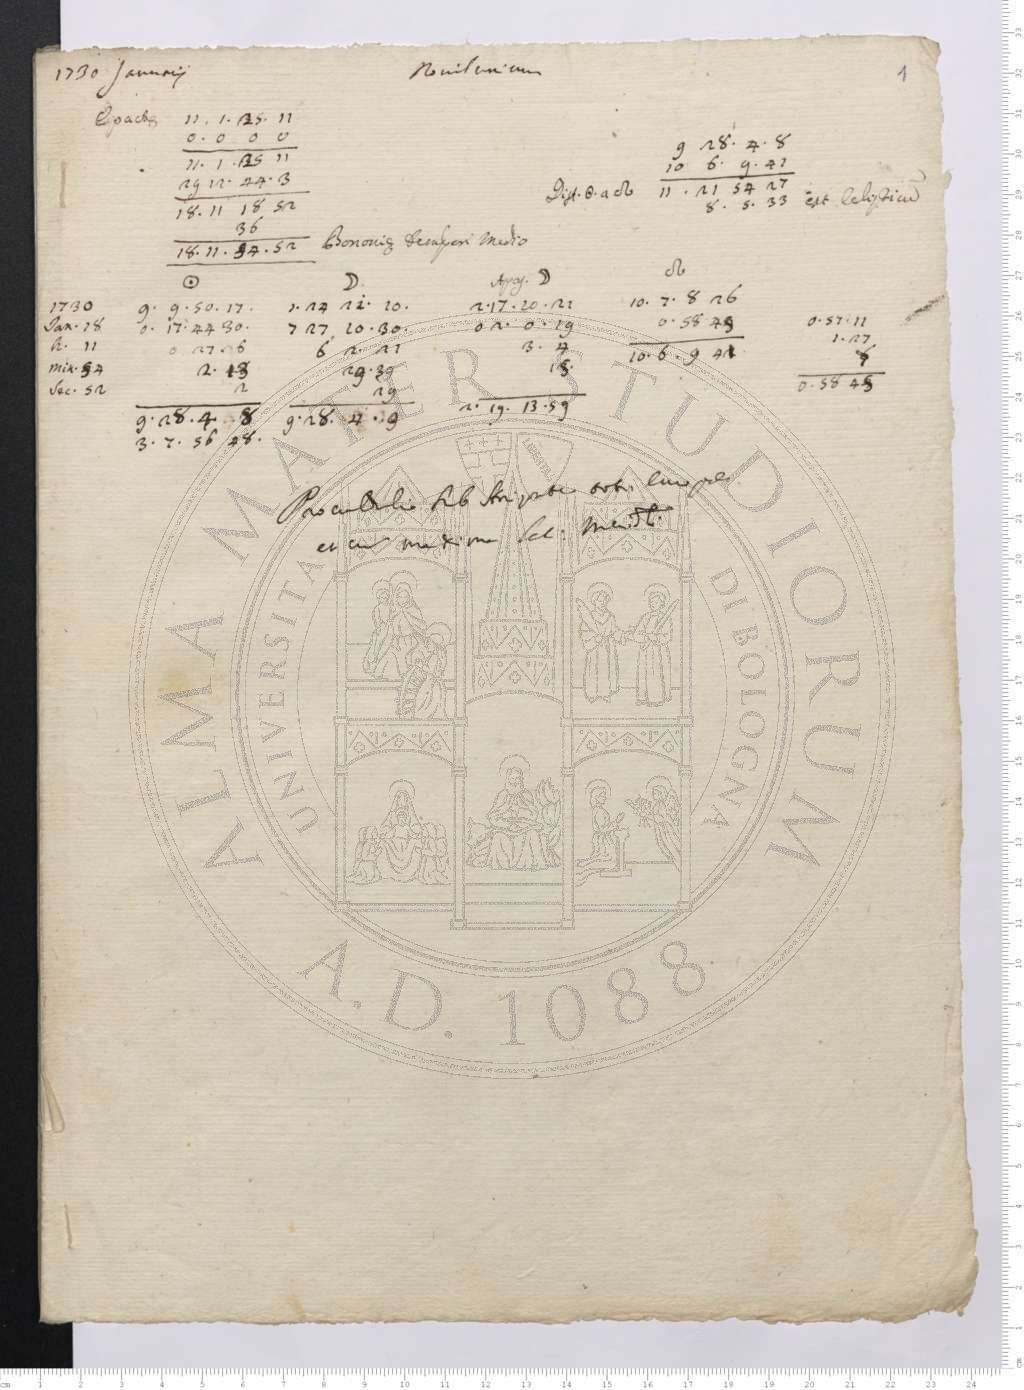 1730 Januarij Novilunium 1
Epactæ 11. 1. 25. 11
0. 0 0 0
11. 1. 25 11
29 12. 44. 3
18. 11 18 52
36
18. 11. 54. 52 Bononiæ Vesperi Medio
9 28. 4. 8
10 6. 9. 41
Dist. ☉ a ☊ 11. 21 54 27
8. 5. 33 est Eclipticū
☉ ☽. Apog. ☽ ☊
1730 9. 9. 50. 17. 1. 24 12. 10. 2. 17. 20. 21 10. 7. 8 26
Jan. 18 0. 17. 44 30. 7 27 20. 30. 0 2. 0. 19 0. 58 45 0. 57. 11
h. 11 0 27. 6 6 2. 21 3. 4 10. 6. 9 41 1. 27
min. 54 2. 13 29. 39 15.
Sec. 52 2 29 0. 58 45
9. 28. 4. 8 9. 28. 4. 9 2. 19. 13. 59
3. 7. 56 48.
maxima
ALMA MATER STUDIORUM
UNIVERSITA DI BOLOGNA
LIBERTAS
A.D. 1088